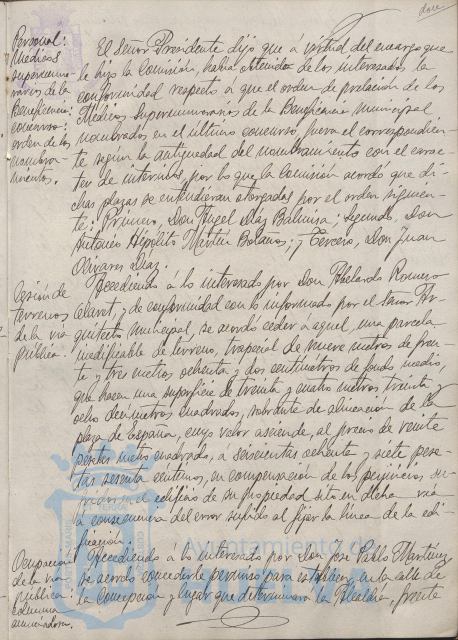 doce
Personal:
Médicos
supernume-
rarios de la
Beneficencia:
concurso:
orden de los
nombra-
mientos.
El Señor Presidente dijo que á virtud del encargo que
le hizo la Comisión, había obtenido de los interesados, la
conformidad respecto á que el orden de prelación de los
Médicos Supernumerarios de la Beneficencia Municipal
nombrados en el último concurso, fuera el correspondien-
te según la antigüedad del nombramiento con el carac-
ter de internos, por lo que la Comisión acordó que di-
chas plazas se entendieran otorgadas por el orden siguien-
te: Primero, Don Angel Díaz; Segundo, Don
Antonio Hipólito Martín Bolaños; y Tercero, Don Juan
Olivares Díaz.
Cesión de
terrenos
de la vía
pública.
Accediendo á lo interesado por Don Abelardo Romero
Claret, y de conformidad con lo informado por el Señor Ar-
quitecto Municipal, se acordó ceder a aquel, una parcela
inedificable de terreno, trapecial de nueve metros de fren-
te y tres metros ochenta y dos centímetros de fondo medio,
que hacen una superficie de treinta y cuatro metros treinta y
ocho decímetros cuadrados, sobrante de alineación de la
plaza de España, cuyo valor asciende, al precio de veinte
pesetas metro cuadrado, a seiscientas ochenta y siete pese-
tas sesenta céntimos, en compensación de los perjuicios, su-
fridos en el edificio de su propiedad sito en dicha vía
a consecuencia del error sufrido al fijar la línea de la edi-
ficación.
Ocupación
de la vía
pública:
columna
anunciadora.
Accediendo á lo interesado por Don José Pablo Martínez
se acordó concederle permiso para establecer, en la calle de
la Concepción y lugar que determinara la Alcaldía, frente
Ayuntamiento de